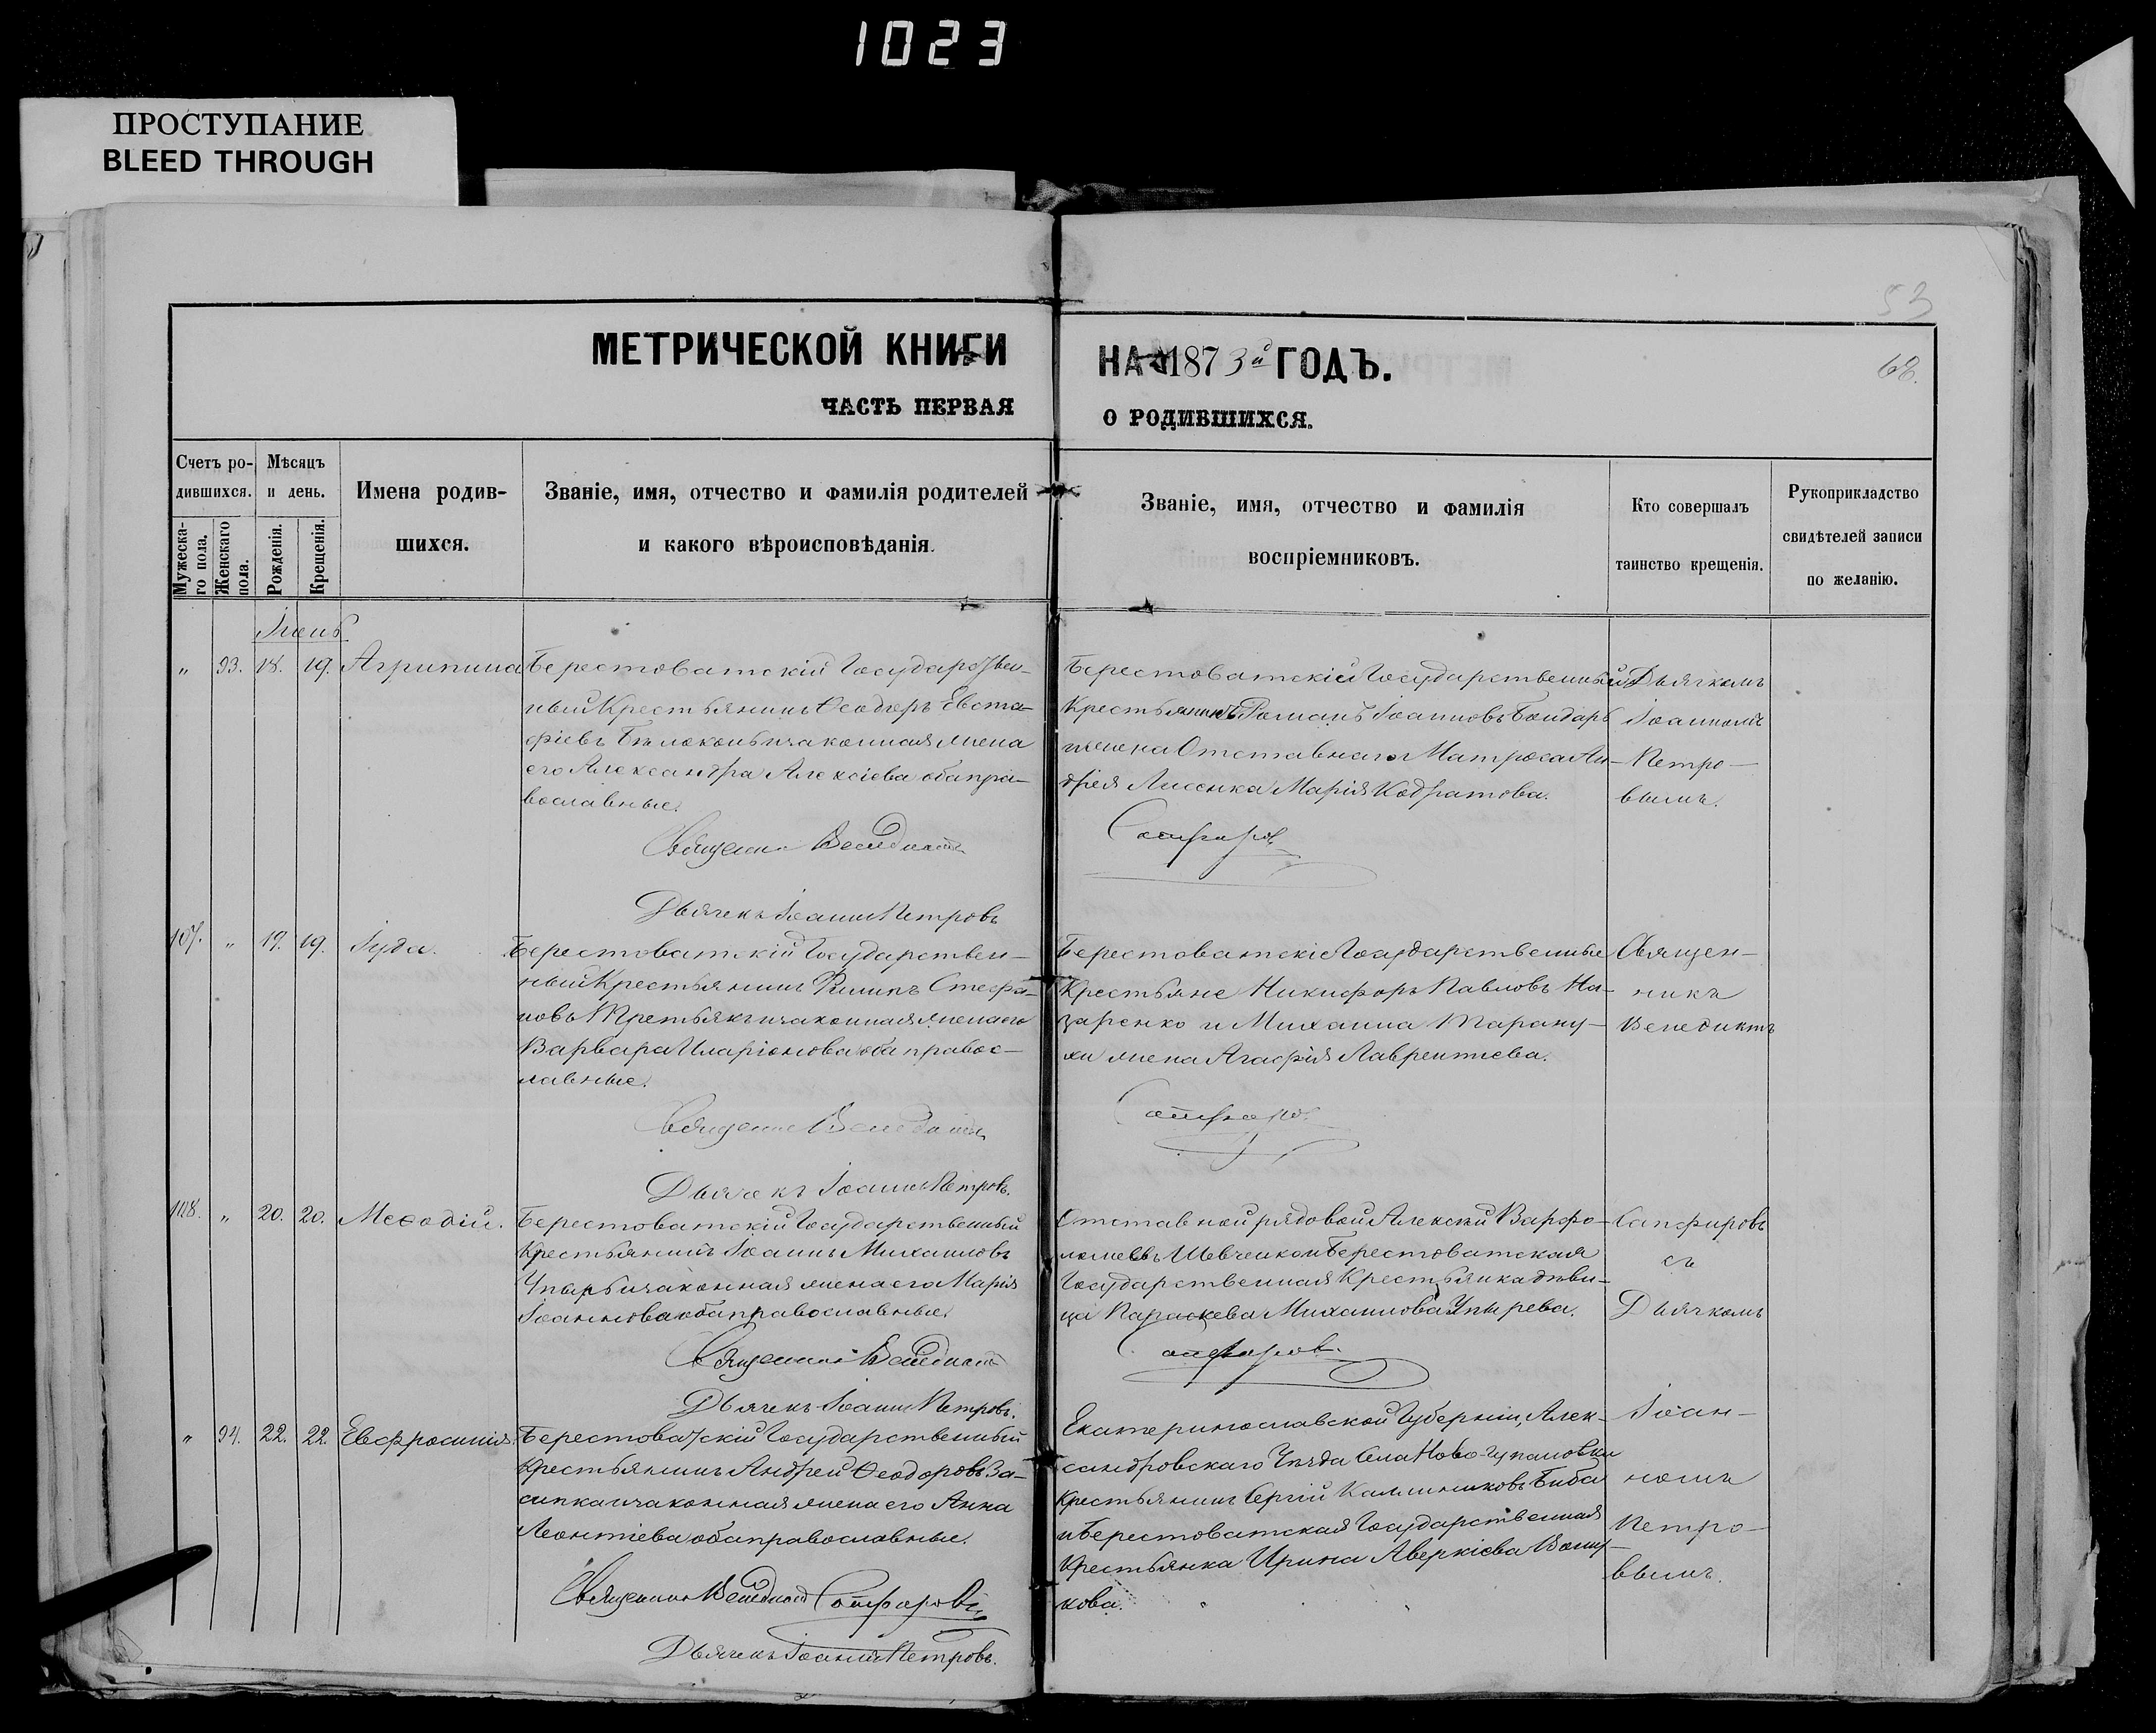 1023
ПРОСТУПАНИЕ
BLEED THROUGH
53
МЕТРИЧЕСКОЙ КНИГИ
НА 1873й ГОДЪ.
68.
ЧАСТЬ ПЕРВАЯ
О РОДИВШИХСЯ.
Счетъ ро-
дившихся.
Мужеска-
го пола.
Женскаго
пола.
Мѣсяцъ
и день.
Рожденія.
Крещенія.
Имена родив-
шихся.
Званіе, имя, отчество и фамилія родителей
и какого вѣроисповѣданія.
Званіе, имя, отчество и фамилія
воспріемниковъ.
Кто совершалъ
таинство крещенія.
Рукоприкладство
свидѣтелей записи
по желанію.
Іюнь
" 93. 18. 19. Агрипина
Берестоватскій Государствен-
ный Крестьянинъ Ѳеодоръ Евста-
фіевъ Бѣлоконь и законная жена
его Александра Алексіева оба пра-
вославные.
Священникъ Венедиктъ
Дьячекъ Іоаннъ Петровъ
Берестоватскій Государственный
Крестьянинъ Романъ Іоанновъ Бондарь
и жена Отставнаго Матроса Ан-
дрея Лисенка Марія Кодратова.
Сапфировъ
Дьячкомъ
Іоанномъ
Петро-
вымъ.
107. " 19. 19. Іуда.
Берестоватскій Государствен-
ный Крестьянинъ Филипъ Стефа-
новъ Третьякъ и законная жена его
Варвара Иларіонова оба правос-
лавные.
Священникъ Венедиктъ
Дьячекъ Іоаннъ Петровъ.
Берестоватскіе Государственные
Крестьяне Никифоръ Павловъ На-
заренко и Михаила Тарану-
хи жена Агафія Лаврентіева.
Сапфировъ
Священ-
никъ
Венедиктъ
108. " 20. 20. Меѳодій.
Берестоватскій Государственный
Крестьянинъ Іоаннъ Михаиловъ
Упырь и законная жена его Марія
Іоаннова оба православные.
Священникъ Венедиктъ
Дьячекъ Іоаннъ Петровъ.
Отставной рядовой Алексій Варфо-
ломеевъ Шевченко и Берестоватская
Государственная Крестьянка дѣви-
ца Параскева Михаилова Упырева.
Сапфировъ.
Сапфировъ
съ
Дьячкомъ
" 94. 22. 22. Евфросинія.
Берестоватскій Государственный
Крестьянинъ Андрей Ѳеодоровъ За-
сипка и законная жена его Анна
Леонтіева оба православные.
Священникъ Венедиктъ Сапфировъ
Дьячекъ Іоаннъ Петровъ.
Екатеринославской Губерніи, Алек-
сандровскаго Уѣзда Села Ново-
Крестьянинъ Сергій Калинниковъ Биба
и Берестоватская Государственная
Крестьянка Ирина Аверкіева
кова.
Іоан-
номъ
Петро-
вымъ.